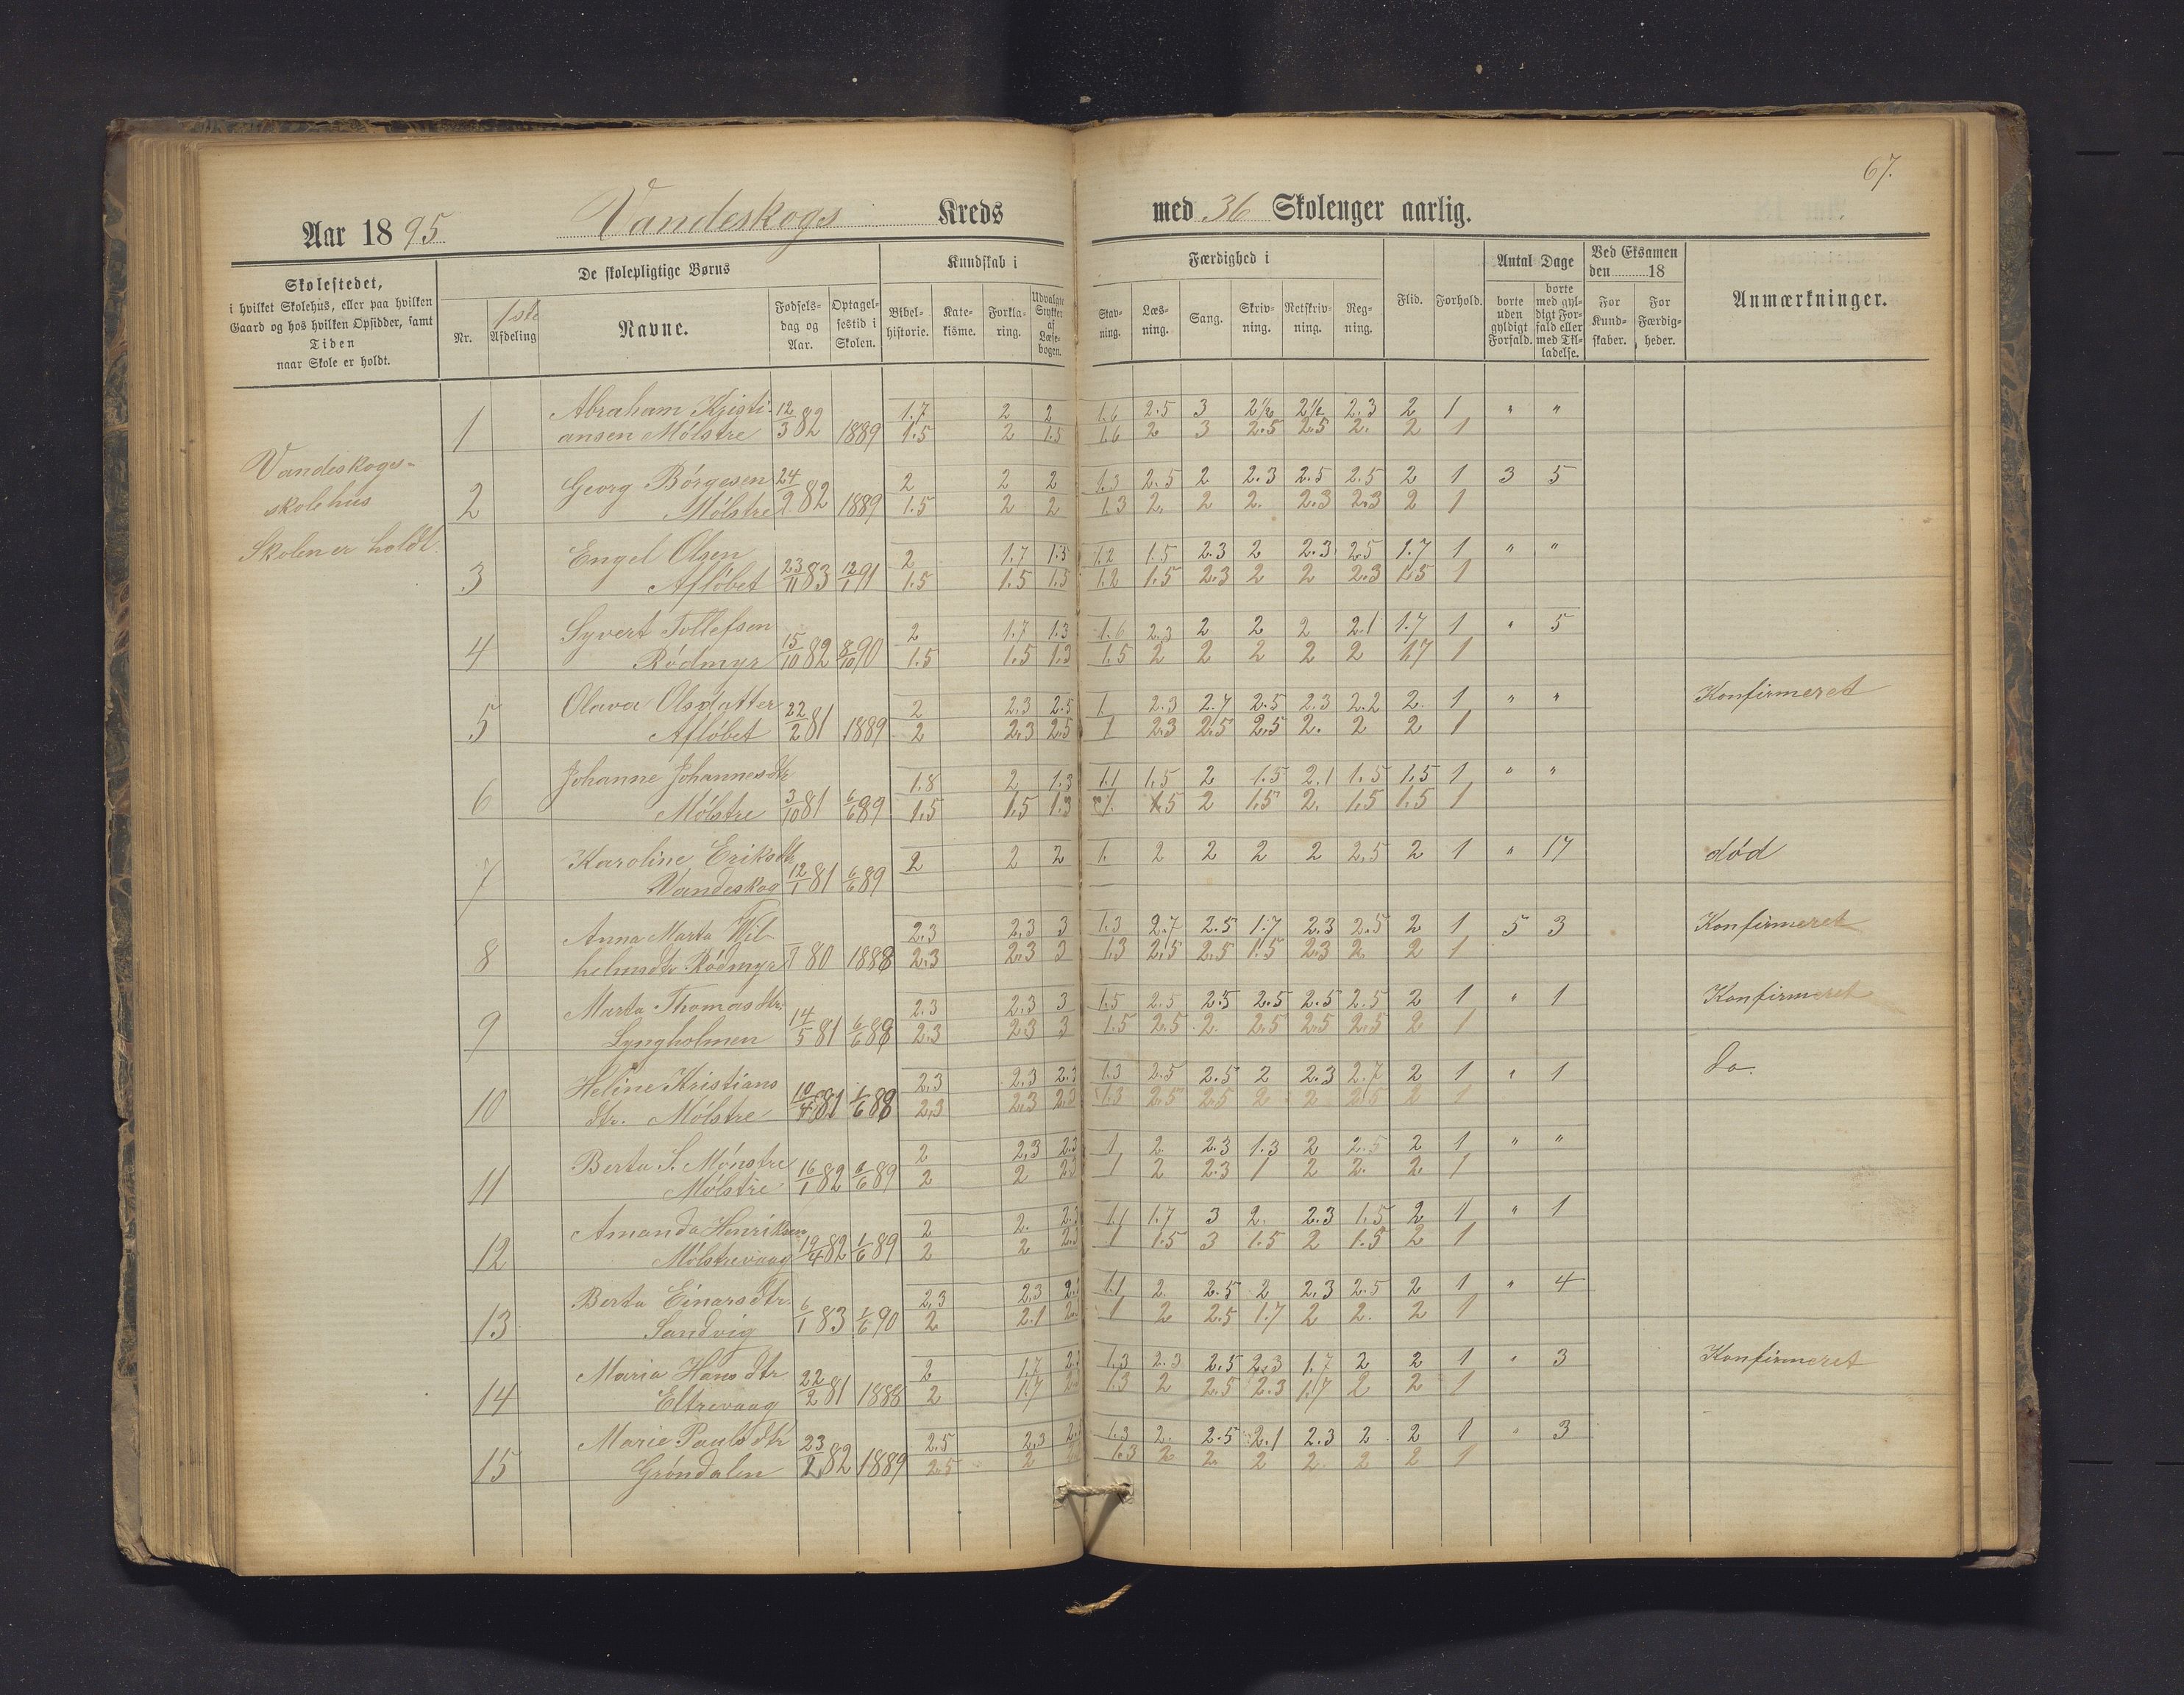 67.
Aar 1895 Vandeskogs Kreds med 36 Skoleuger aarlig.
Skolestedet,
i hvilket Skolehus, eller paa hvilken
Gaard og hos hvilken Opsidder, samt
Tiden
naar Skole er holdt.
De skolepligtige Børns
Nr.
1ste
Afdeling
Navne.
Fødsels-
dag og
Aar.
Optagel-
sestid i
Skolen.
Kundskab i
Bibel-
historie.
Kate-
kisme.
Forkla-
ring.
Udvalgte
Stykker
af
Læse-
bogen.
Færdighed i
Stav-
ning.
Læs-
ning.
Sang.
Skriv-
ning.
Retskriv-
ning.
Reg-
ning.
Flid.
Forhold.
Antal Dage
borte
uden
gyldigt
Forfald.
borte
med gyl-
digt For-
fald eller
med Til-
ladelse.
Ved Eksamen
den 18
For
Kund-
skaber.
For
Færdig-
heder.
Anmærkninger.
Vandeskogs-
skolehus
Skolen er holdt.
1 Abraham Kristi- 12/3 82 1889 1.7 2 2 1.6 2.5 3 2½ 2½ 2.3 2 1 " "
ansen Mølstre 1.5 2 1.5 1.6 2 3 2.5 2.5 2. 2 1
2 Georg Børgesen 24/2 82 1889 2 2 2 1.3 2.5 2 2.3 2.5 2.5 2 1 3 5
Mølstre 1.5 2 2 1.3 2. 2 2. 2.3 2.3 2 1
3 Engel Olsen 23/11 83 12/1 91 2 1.7 1.5 1.2 1.5 2.3 2 2.3 2.5 1.7 1 " "
Afløbet 1.5 1.5 1.5 1.2 1.5 2.3 2 2 2.3 1.5 1
4 Syvert Tollefsen 15/10 82 8/10 90 2 1.7 1.3 1.6 2.3 2 2 2 2.1 1.7 1 " 5
Rødmyr 1.5 1.5 1.3 1.5 2 2 2 2 2 1.7 1
5 Olava Olsdatter 22/2 81 1889 2 2.3 2.5 1 2.3 2.7 2.5 2.3 2.2 2. 1 " " Konfirmeret
Afløbet 2 2.3 2.5 1 2.3 2.5 2.5 2. 2 2 1
6 Johanne Johannesdtr 3/10 81 6/6 89 1.8 2 1.3 1.1 1.5 2 1.5 2.1 1.5 1.5 1 " "
Mølstre 1.5 1.5 1.3 1. 1.5 2 1.5 2. 1.5 1.5 1
7 Karoline Eriksdtr 12/1 81 6/6 89 2 2 2 1. 2 2 2 2 2.5 2 1 " 17 død
Vandeskog
8 Anna Marta Wil- 80 1888 2.3 2.3 3 1.3 2.7 2.5 1.7 2.3 2.5 2 1 5 3 Konfirmeret
helmsdtr. Rødmyr 2.3 2.3 3 1.3 2.5 2.5 1.5 2.3 2. 2 1
9 Marta Thomasdtr. 14/5 81 6/6 88 2.3 2.3 3 1.5 2.5 2.5 2.5 2.5 2.5 2 1 " 1 Konfirmeret
Lyngholmen 2.3 2.3 3 1.5 2.5 2. 2.5 2.5 2.5 2 1
10 Heline Kristians 10/4 81 1/6 88 2.3 2.3 2.3 1.3 2.5 2.5 2 2.3 2.7 2 1 " 1 do.
dtr. Mølstre 2.3 2.3 2.3 1.3 2.5 2.5 2 2 2.5 2 1
11 Berta S. Mønstre 16/1 82 6/6 89 2 2.3 2.3 1 2. 2.3 1.3 2 2.5 2 1 " "
Mølstre 2 2 2.3 1 2 2.3 1 2 2. 2 1
12 Amanda Henriksen 19/4 82 1/6 89 2 2. 2.3 1.1 1.7 3 2. 2.3 1.5 2 1 " 1
Mølstrevaag 2 2 2.3 1 1.5 3 1.5 2 1.5 2 1
13 Berta Einarsdtr. 6/1 83 1/6 90 2.3 2.3 1.1 2. 2.5 2 2.3 2.5 2 1 " 4
Sandvig 2 2.1 1 2 2.5 1.7 2 2. 2 1
14 Maria Hansdtr 22/2 81 1888 2 1.7 1.3 2.3 2.5 2.3 1.7 2 2 1 " 3 Konfirmeret
Eltrevaag 2 1.7 1.3 2 2.5 2.3 1.7 2 2 1
15 Marie Paulsdtr 23/2 82 1889 2.5 2.3 1.3 2. 2.5 2.1 2.3 2 2 1 " 3
Grøndalen 2.5 2 1.3 2 2. 2 2. 2 2 1